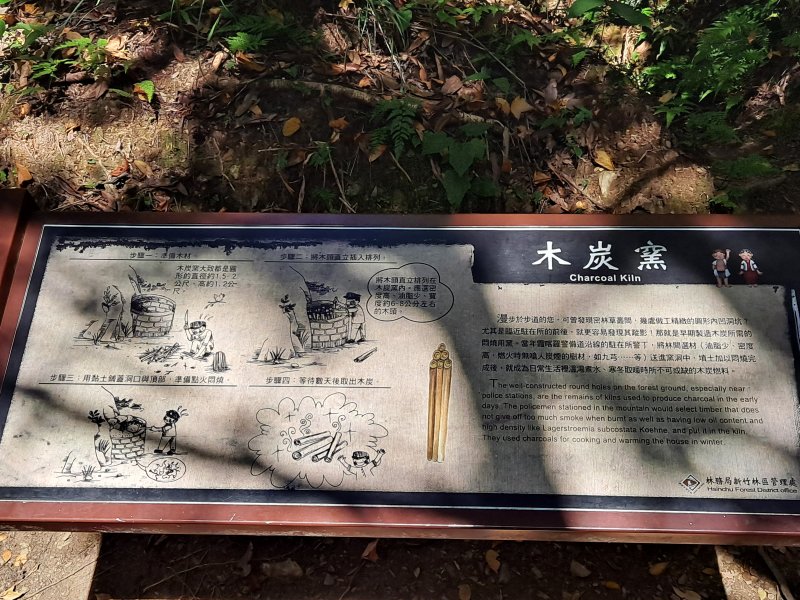 步驟一：準備木材
木炭窯大致都是圓
形的直徑約1.5-2
公尺、高約1.2公
尺。
步驟二：將木頭直立插入排列。
將木頭直立排列在
木炭窯內，應選密
度高、油脂少、寬
度約6-8公分左右
的木頭。
步驟三：用黏土鋪蓋洞口與頂部，準備點火悶燒。
步驟四：等待數天後取出木炭
木炭窯
Charcoal Kiln
漫步於步道的您，可曾發現密林草叢間，幾處做工精緻的圓形內凹洞坑？
尤其是臨近駐在所的前後，就更容易發現其蹤影！那就是早期製造木炭所需的
悶燒用窯。當年霞喀羅警備道沿線的駐在所警丁，將林間選材（油脂少、密度
高、燃火時無嗆人炭煙的樹材，如九芎……等）送進窯洞中，填土加以悶燒完
成後，就成為日常生活裡溫湯煮水、寒冬取暖時所不可或缺的木炭燃料。
The well-constructed round holes on the forest ground, especially near
police stations, are the remains of kilns used to produce charcoal in the early
days. The policemen stationed in the mountain would select timber that does
not give off too much smoke when burnt as well as having low oil content and
high density like Lagerstroemia subcostata Koehne, and put it in the kiln.
They used charcoals for cooking and warming the house in winter.
林務局新竹林區管理處
Hsinchu Forest District office